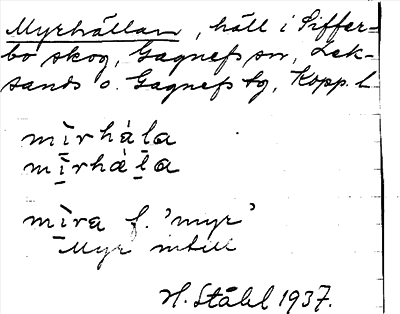 Myrhällan, häll i Siffer=
bo skog, Gagnefs sn, Lek-
sands o. Gagnefs tg, Kopp. l.
mìrhàla
mìrhàla
mìra f. 'myr'
Myr intill
H. Ståhl 1937.